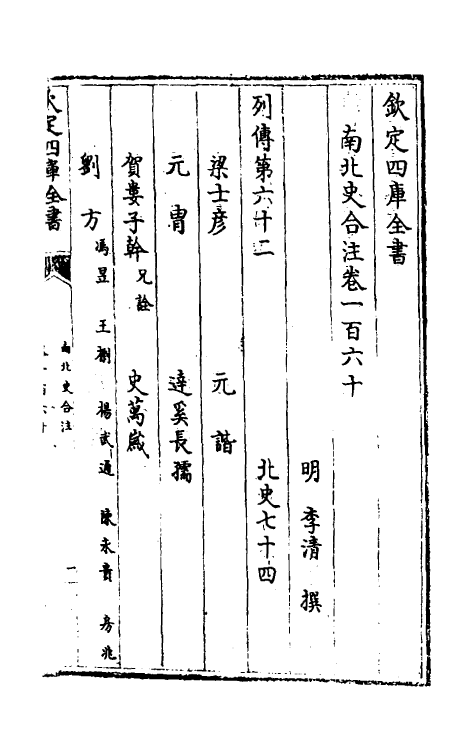 欽定四庫全書
南北史合注卷一百六十
明 李清 撰
列傳第六十二 北史七十四
梁士彦 元諧
元胄 達奚長孺
賀婁子幹 兄詮 史萬歲
劉方 馮昱 王𣚴 楊武通 陳永貴 房兆
欽定四庫全書
南北史合注